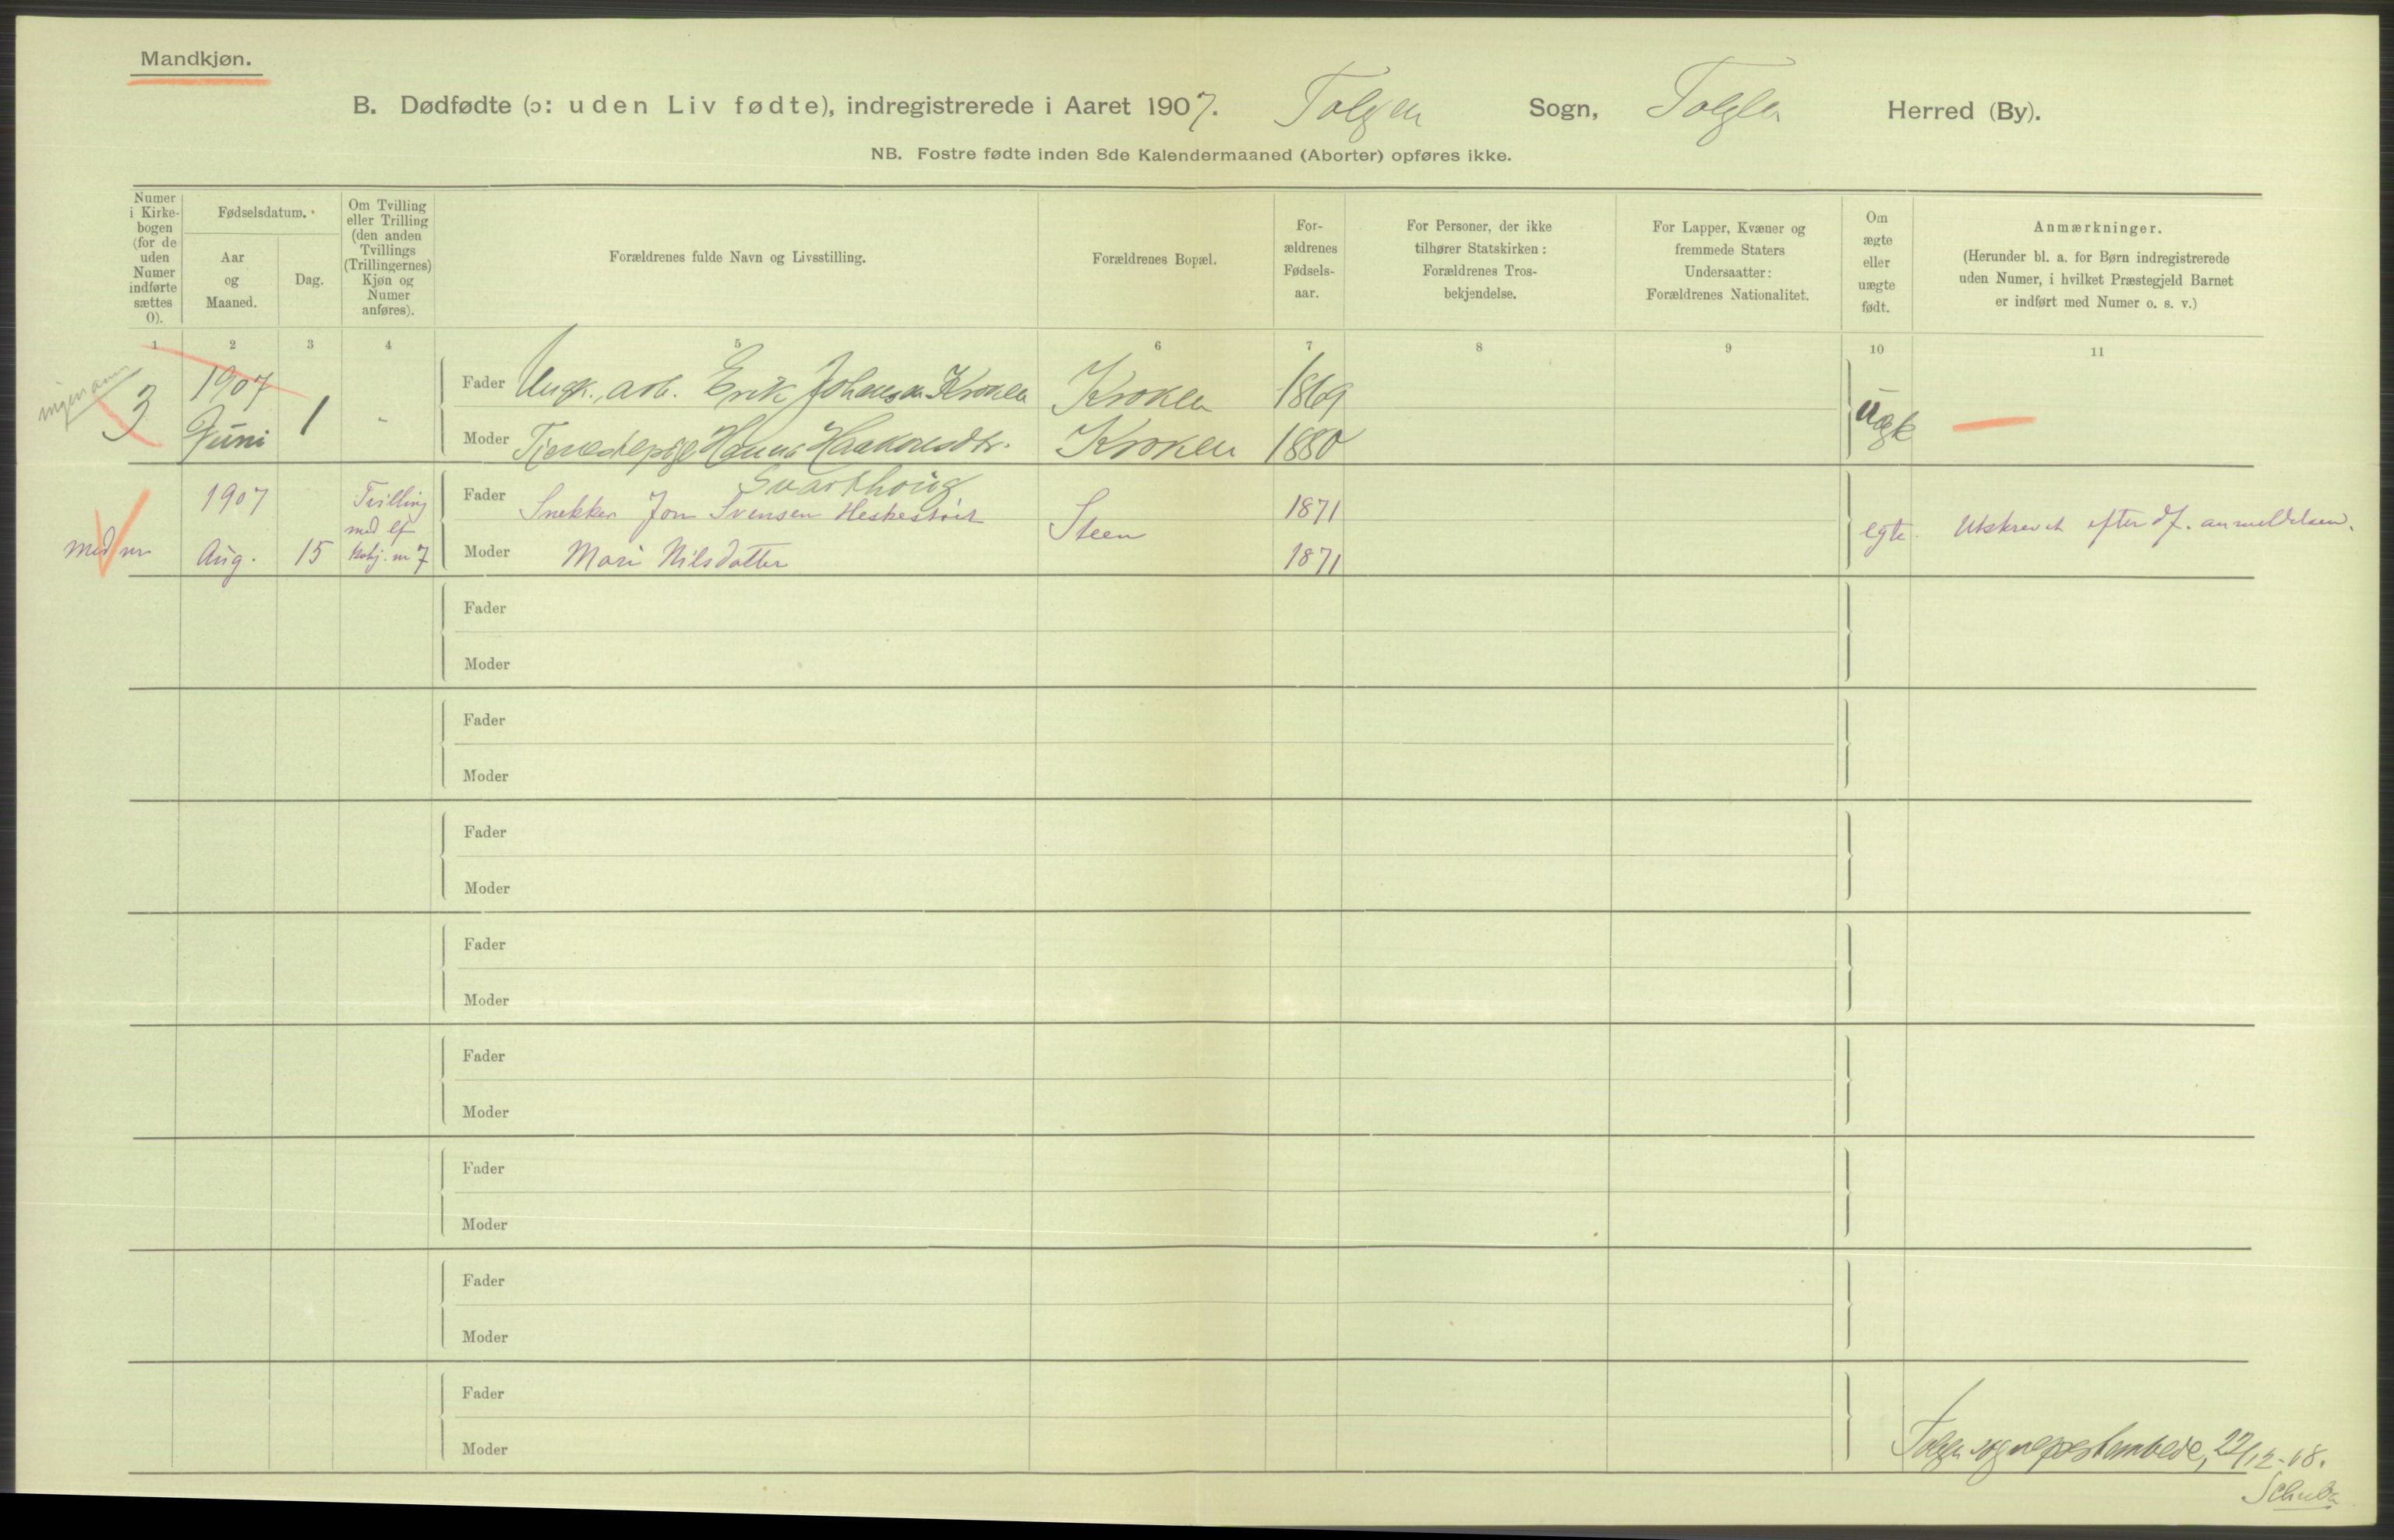 Mandkjøn.
B. Dødfødte (ɔ: uden Liv fødte), indregistrerede i Aaret 1907. Tolgen Sogn, Tolgen Herred (By).
NB. Fostre fødte inden 8de Kalendermaaned (Aborter) opføres ikke.
Numer
i Kirke-
bogen
(for de
uden
Numer
indførte
sættes
0).
Fødselsdatum.
Aar
og
Maaned.
Dag.
Om Tvilling
eller Trilling
(den anden
Tvillings
(Trillingernes)
Kjøn og
Numer
anføres).
Forældrenes fulde Navn og Livsstilling.
Forældrenes Bopæl.
For-
ældrenes
Fødsels-
aar.
For Personer, der ikke
tilhører Statskirken:
Forældrenes Tros-
bekjendelse.
For Lapper, Kvæner og
fremmede Staters
Undersaatter:
Forældrenes Nationalitet.
Om
ægte
eller
uægte
født.
Anmærkninger.
(Herunder bl. a. for Børn indregistrerede
uden Numer, i hvilket Præstegjeld Barnet
er indført med Numer o. s. v.)
1 2 3 4 5 6 7 8 9 10 11
3
1907
Juni
1
-
Fader Ungk. arb. Erik Johansen Kroken Kroken 1869
Moder Tjenestepige Hanna Haakonsdtr. Kroken 1880
Svarthoug
Uægte
med nr
1907
Aug. 15
Tvilling
med lf
kvkj. nr 7
Fader Snekker Jon Svensen Steen 1871
Moder Mari Nilsdatter 1871
egte. Utskrevet efter df. anmeldelsen.
Fader
Moder
Fader
Moder
Fader
Moder
Fader
Moder
Fader
Moder
Fader
Moder
Fader
Moder
Fader
Moder
Tolgen sogneprestembede, 22/12-08.